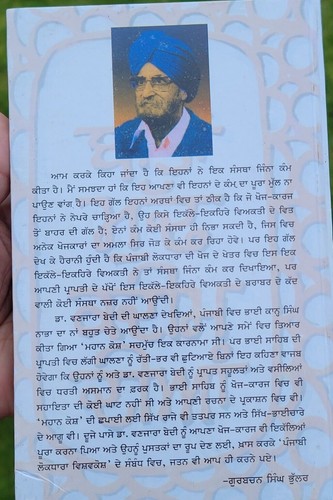 ਆਮ ਕਰਕੇ ਕਿਹਾ ਜਾਂਦਾ ਹੈ ਕਿ ਇਹਨਾਂ ਨੇ ਇਕ ਸੰਸਥਾ ਜਿੰਨਾ ਕੰਮ
ਕੀਤਾ ਹੈ। ਮੈਂ ਸਮਝਦਾ ਹਾਂ ਕਿ ਇਹ ਆਪਣਾ ਵੀ ਇਹਨਾਂ ਦੇ ਕੰਮ ਦਾ ਪੂਰਾ ਮੁੱਲ ਨਾ
ਪਾਉਣ ਵਾਂਗ ਹੈ। ਇਹ ਗੱਲ ਇਹਨਾਂ ਅਰਥਾਂ ਵਿਚ ਤਾਂ ਠੀਕ ਹੈ ਕਿ ਜੋ ਖੋਜ-ਕਾਰਜ
ਇਹਨਾਂ ਨੇ ਨੇਪਰੇ ਚਾੜ੍ਹਿਆ ਹੈ, ਉਹ ਕਿਸੇ ਇਕੱਲੇ-ਇਕਹਿਰੇ ਵਿਅਕਤੀ ਦੇ ਵਿਤ
ਤੋਂ ਬਾਹਰ ਦੀ ਗੱਲ ਹੈ; ਏਨਾਂ ਕੰਮ ਕੋਈ ਸੰਸਥਾ ਹੀ ਨਿਭਾ ਸਕਦੀ ਹੈ, ਜਿਸ ਵਿਚ
ਅਨੇਕ ਖੋਜਕਾਰਾਂ ਦਾ ਅਮਲਾ ਸਿਰ ਜੋੜ ਕੇ ਕੰਮ ਕਰ ਰਿਹਾ ਹੋਵੇ। ਪਰ ਇਹ ਗੱਲ
ਦੇਖ ਕੇ ਹੈਰਾਨੀ ਹੁੰਦੀ ਹੈ ਕਿ ਪੰਜਾਬੀ ਲੋਕਧਾਰਾ ਦੀ ਖੋਜ ਦੇ ਖੇਤਰ ਵਿਚ ਇਸ ਇਕ
ਇਕੱਲੇ-ਇਕਹਿਰੇ ਵਿਅਕਤੀ ਨੇ ਤਾਂ ਸੰਸਥਾ ਜਿੰਨਾ ਕੰਮ ਕਰ ਦਿਖਾਇਆ, ਪਰ
ਆਪਣੀ ਪ੍ਰਾਪਤੀ ਦੇ ਪੱਖੋਂ ਇਸ ਇਕੱਲੇ-ਇਕਹਿਰੇ ਵਿਅਕਤੀ ਦੇ ਬਰਾਬਰ ਦੇ ਕੱਦ
ਵਾਲੀ ਕੋਈ ਸੰਸਥਾ ਨਜ਼ਰ ਨਹੀਂ ਆਉਂਦੀ।
ਡਾ. ਵਣਜਾਰਾ ਬੇਦੀ ਦੀ ਘਾਲਣਾ ਦੇਖਦਿਆਂ, ਪੰਜਾਬੀ ਵਿਚ ਭਾਈ ਕਾਨ੍ਹ ਸਿੰਘ
ਨਾਭਾ ਦਾ ਨਾਂ ਬਹੁਤ ਚੇਤੇ ਆਉਂਦਾ ਹੈ। ਉਹਨਾਂ ਵਲੋਂ ਆਪਣੇ ਸਮੇਂ ਵਿਚ ਤਿਆਰ
ਕੀਤਾ ਗਿਆ ‘ਮਹਾਨ ਕੋਸ਼’ ਸਚਮੁੱਚ ਇਕ ਕਾਰਨਾਮਾ ਸੀ। ਪਰ ਭਾਈ ਸਾਹਿਬ ਦੀ
ਪ੍ਰਾਪਤੀ ਵਿਚ ਲੱਗੀ ਘਾਲਣਾ ਨੂੰ ਰੱਤੀ-ਭਰ ਵੀ ਛੁਟਿਆਏ ਬਿਨਾਂ ਇਹ ਕਹਿਣਾ ਵਾਜਬ
ਹੋਵੇਗਾ ਕਿ ਉਹਨਾਂ ਨੂੰ ਅਤੇ ਡਾ. ਵਣਜਾਰਾ ਬੇਦੀ ਨੂੰ ਪ੍ਰਾਪਤ ਸਹੂਲਤਾਂ ਅਤੇ ਵਸੀਲਿਆਂ
ਵਿਚ ਧਰਤੀ ਅਸਮਾਨ ਦਾ ਫ਼ਰਕ ਹੈ। ਭਾਈ ਸਾਹਿਬ ਨੂੰ ਖੋਜ-ਕਾਰਜ ਵਿਚ ਵੀ
ਸਹਾਇਤਾ ਦੀ ਕੋਈ ਘਾਟ ਨਹੀਂ ਸੀ ਅਤੇ ਆਪਣੀ ਰਚਨਾ ਦੇ ਪ੍ਰਕਾਸ਼ਨ ਵਿਚ ਵੀ।
‘ਮਹਾਨ ਕੋਸ਼’ ਦੀ ਛਪਾਈ ਲਈ ਸਿੱਖ ਰਾਜੇ ਵੀ ਤਤਪਰ ਸਨ ਅਤੇ ਸਿੱਖ-ਭਾਈਚਾਰੇ
ਦੇ ਆਗੂ ਵੀ। ਦੂਜੇ ਪਾਸੇ ਡਾ. ਵਣਜਾਰਾ ਬੇਦੀ ਨੂੰ ਆਪਣਾ ਖੋਜ-ਕਾਰਜ ਵੀ ਇਕੱਲਿਆਂ
ਪੂਰਾ ਕਰਨਾ ਪਿਆ ਅਤੇ ਉਹਨੂੰ ਪੁਸਤਕਾਂ ਦਾ ਰੂਪ ਦੇਣ ਲਈ, ਖ਼ਾਸ ਕਰਕੇ ‘ਪੰਜਾਬੀ
ਲੋਕਧਾਰਾ ਵਿਸ਼ਵਕੋਸ਼’ ਦੇ ਸੰਬੰਧ ਵਿਚ, ਜਤਨ ਵੀ ਆਪ ਹੀ ਕਰਨੇ ਪਏ।
-ਗੁਰਬਚਨ ਸਿੰਘ ਭੁੱਲਰ